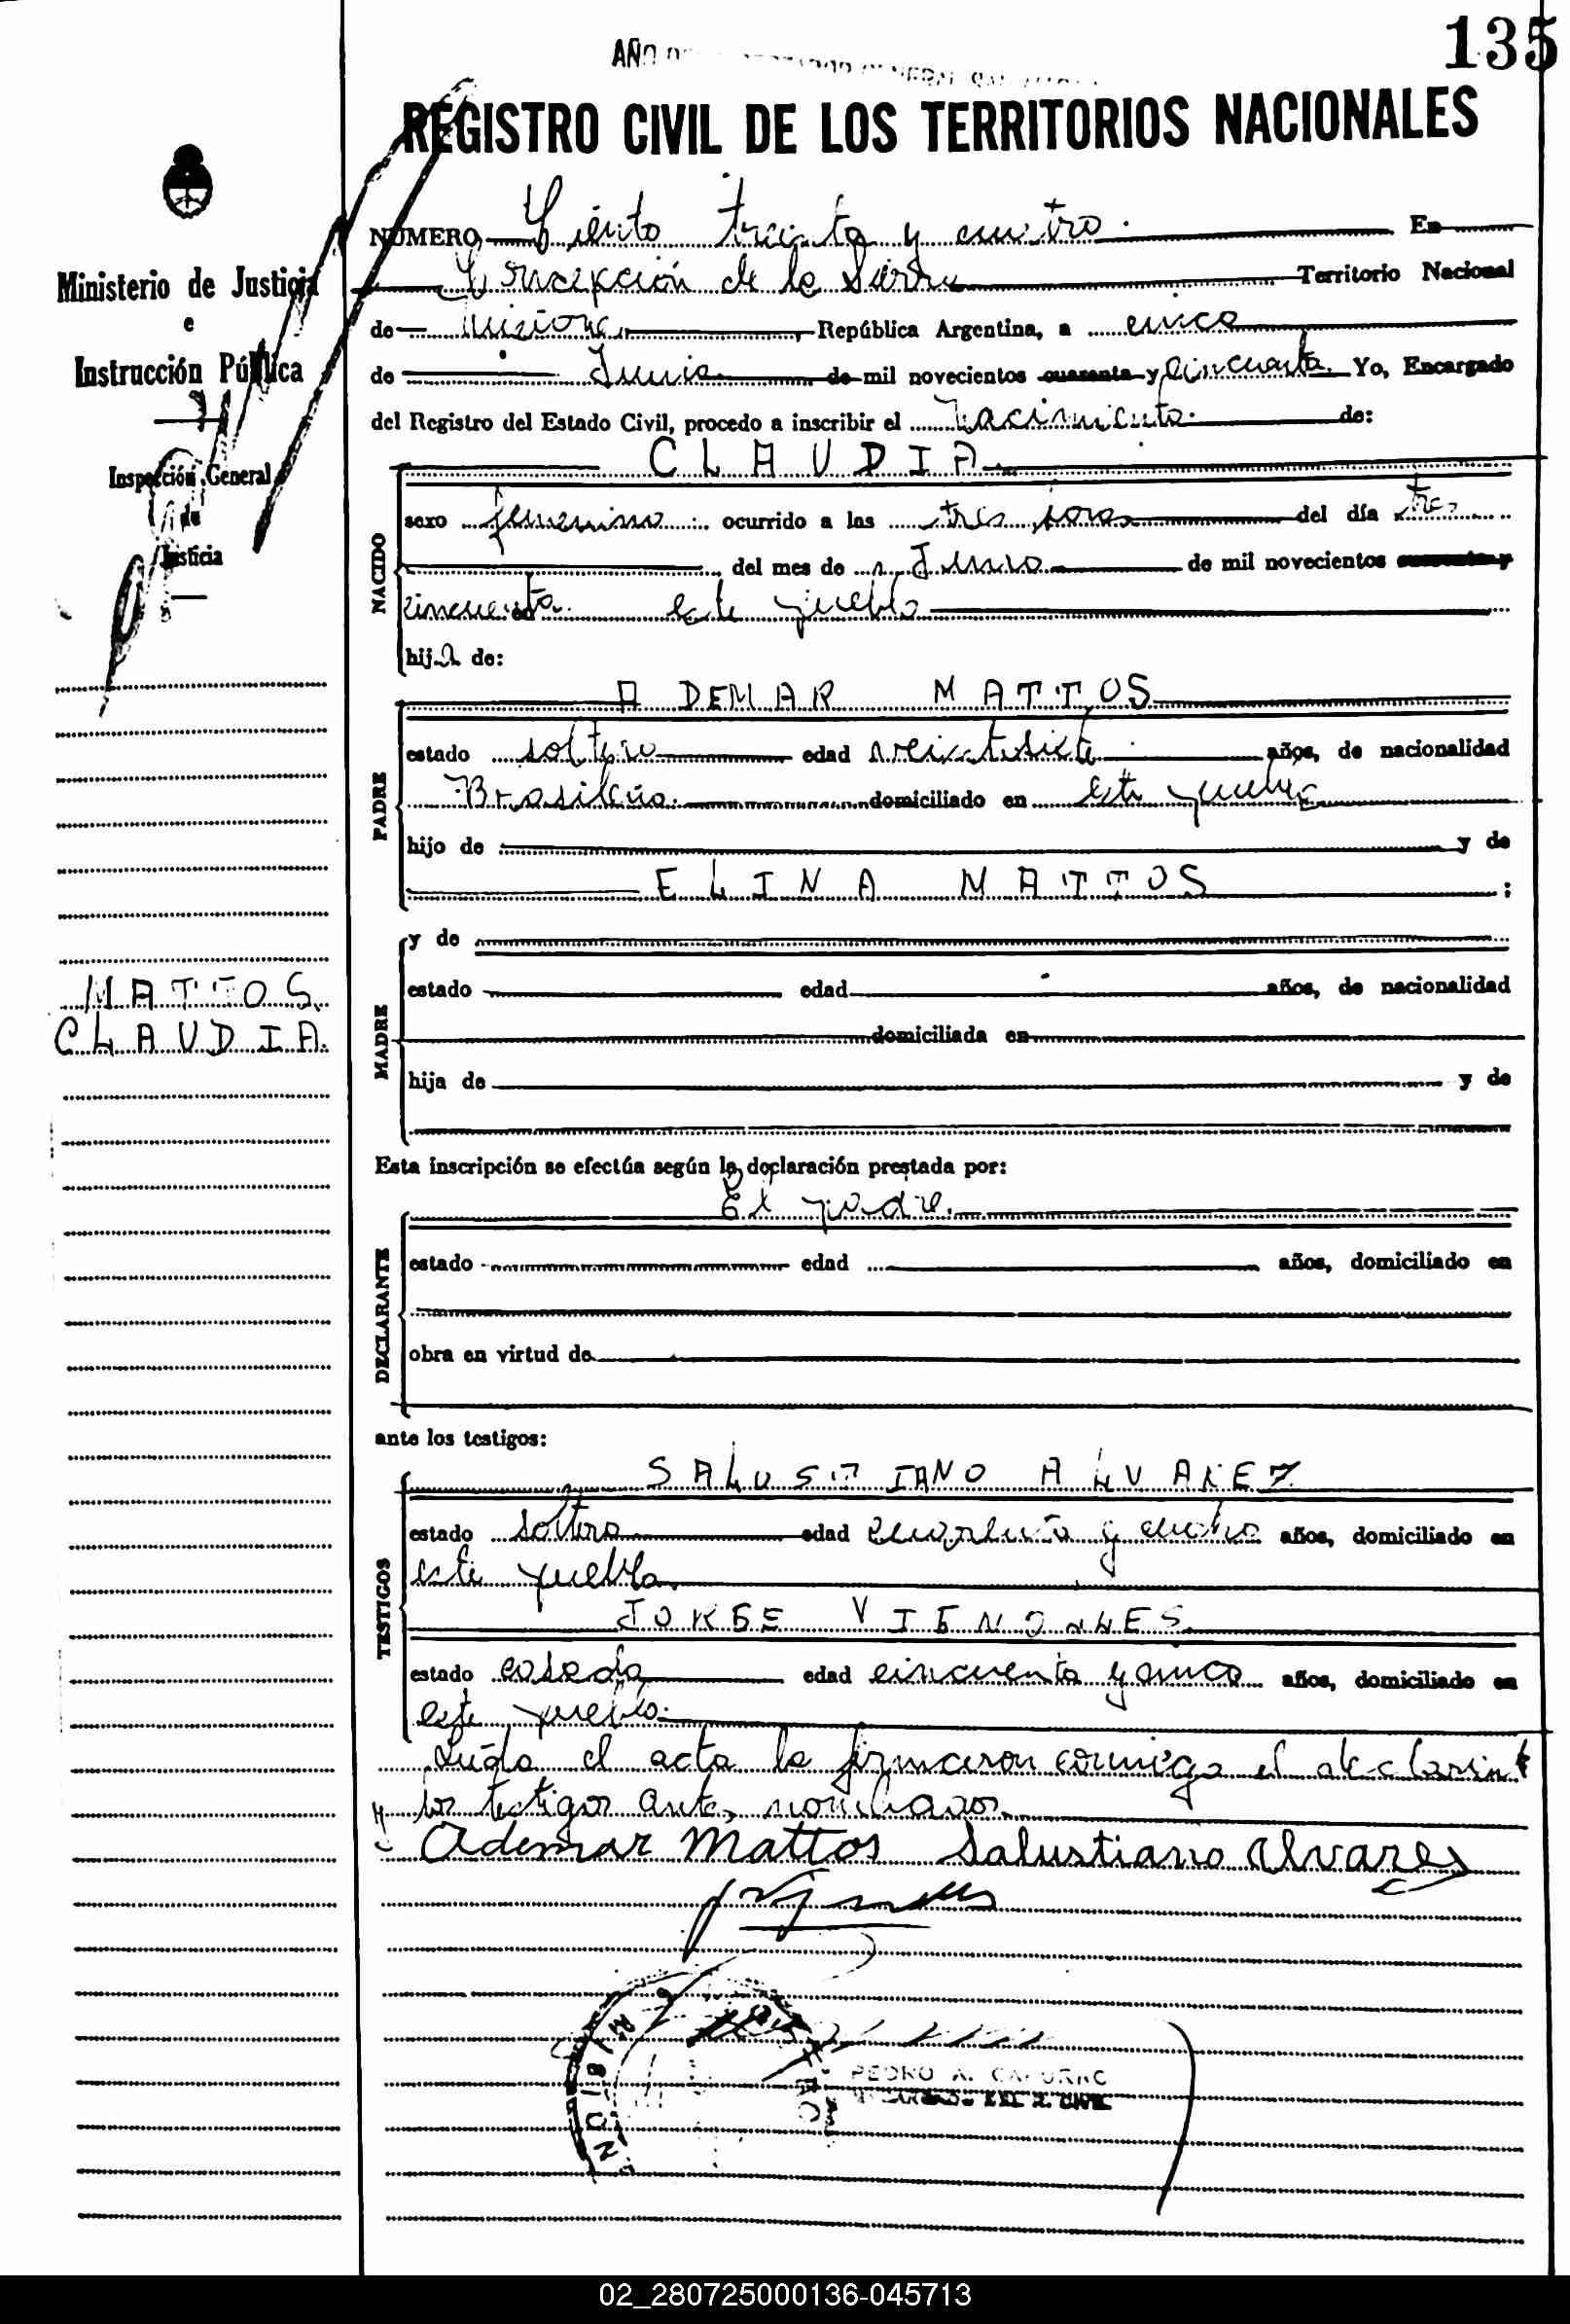 135
REGISTRO CIVIL DE LOS TERRITORIOS NACIONALES
Ministerio de Justicia
e
Instrucción Pública
Inspección General
de
Justicia
MATTOS
CLAUDIA.
NÚMERO Ciento treinta y cuatro. En
Concepción de la Sierra Territorio Nacional
de Misiones, República Argentina, a cinco
de Junio de mil novecientos cuarenta y cincuenta. Yo, Encargado
del Registro del Estado Civil, procedo a inscribir el nacimiento de:
NACIDO
CLAUDIA
sexo femenino ocurrido a las tres horas del día tres
del mes de Junio de mil novecientos cuarenta y
cincuenta en este pueblo
hija de:
PADRE
ADEMAR MATTOS
estado soltero edad años, de nacionalidad
Brasileño domiciliado en este pueblo
hijo de y de
ELINA MATTOS ;
MADRE
y de
estado edad años, de nacionalidad
domiciliada en
hija de y de
Esta inscripción se efectúa según la declaración prestada por:
DECLARANTE
El padre.
estado edad años, domiciliado en
obra en virtud de
ante los testigos:
TESTIGOS
SALUSTIANO ALVAREZ
estado soltero edad y años, domiciliado en
este pueblo
JORGE VIGNOLLES
estado casado edad cincuenta y cinco años, domiciliado en
este pueblo.
Leída el acta la firmaron conmigo el declarante
y los testigos antes nombrados.
Ademar Mattos Salustiano Alvares
PEDRO A.
02_280725000136-045713